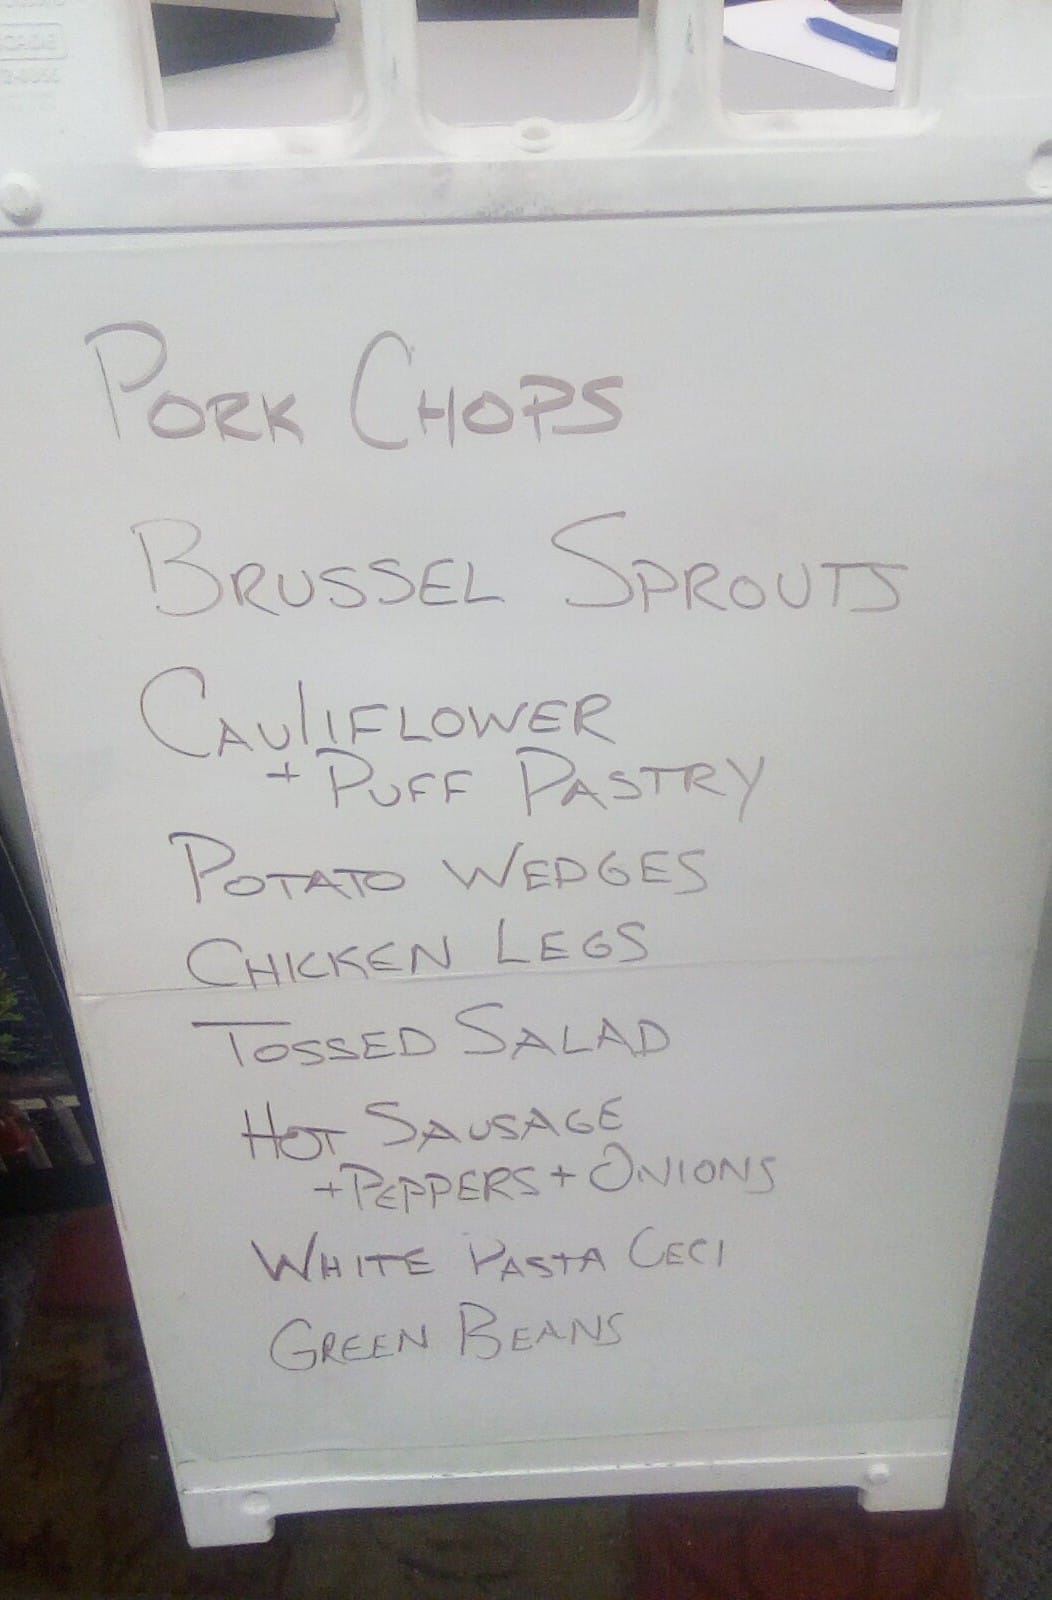 PORK CHOPS
BRUSSEL SPROUTS
CAULIFLOWER
+ PUFF PASTRY
POTATO WEDGES
CHICKEN LEGS
TOSSED SALAD
HOT SAUSAGE
+ PEPPERS + ONIONS
WHITE PASTA CECI
GREEN BEANS